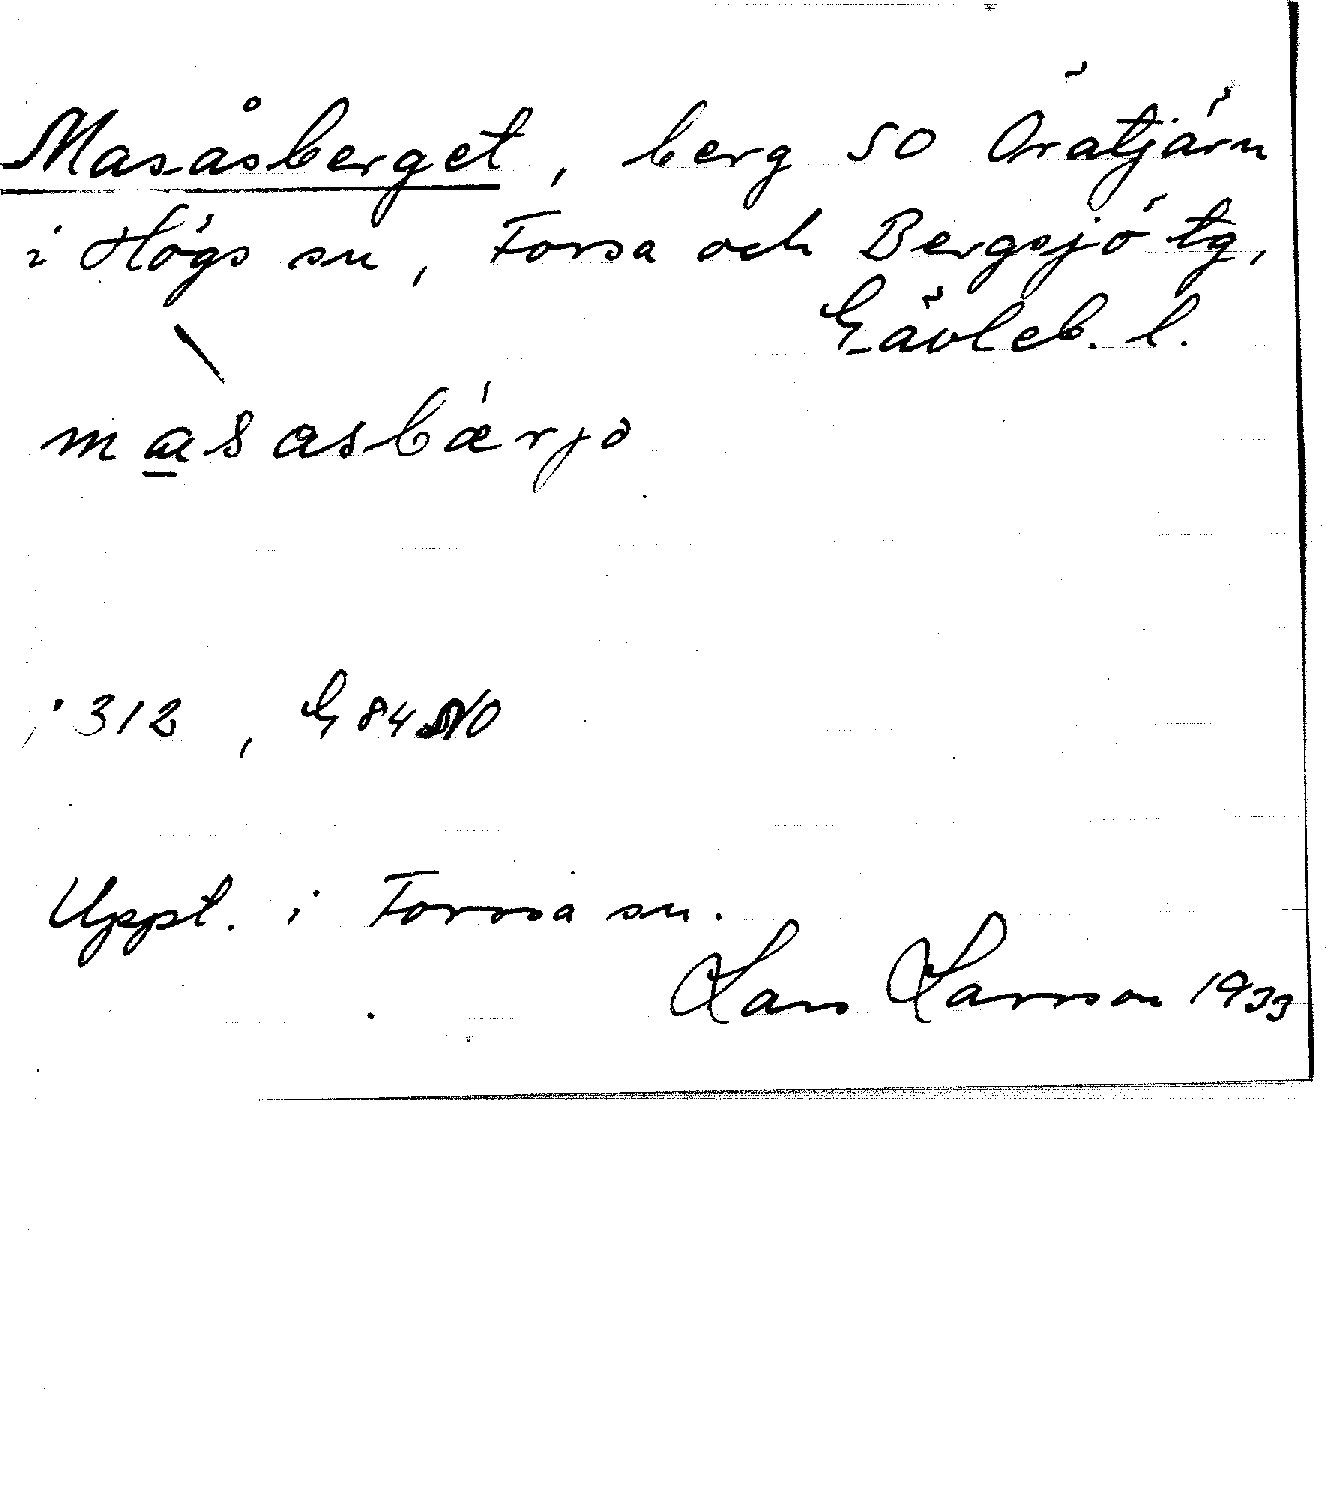 Masåsberget, berg SO Örätjärn
i Högs sn, Forsa och Bergsjö tg,
Gävleb. l.
masasbärjo
312, G84NO
Uppt. i Forssa sn.
Lars Larsson 1933